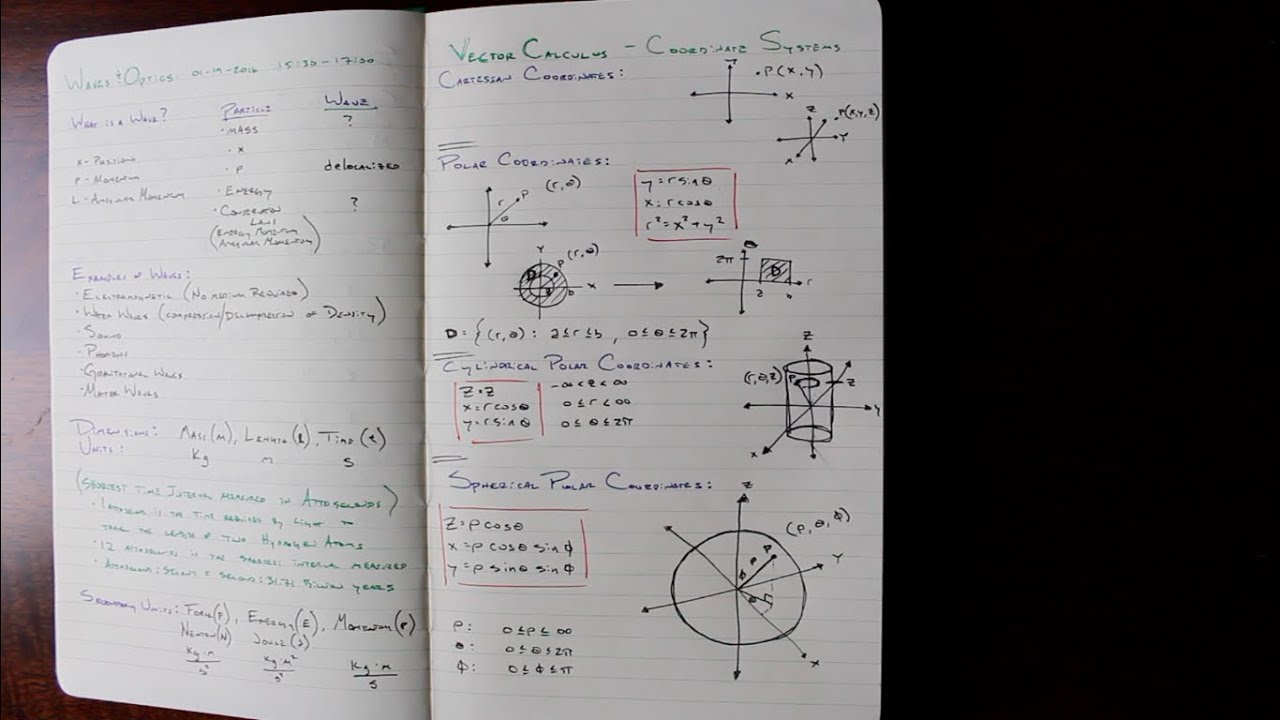 Waves & Optics 01-19-2016 15:30-17:00
What is a Wave? Particle Wave
• Mass ?
x - Position • x
p - Momentum • p delocalized
L - Angular Momentum • Energy
• Conservation ?
Laws
(Energy, Momentum
Angular Momentum)
Examples of Waves:
• Electromagnetic (No medium Required)
• Water Waves (compression/Decompression of Density)
• Sound
• Phonons
• Gravitational Waves
• Matter Waves
Dimensions: Mass(m), Length(l), Time(t)
Units: Kg m s
(Shortest Time Interval measured in Attoseconds)
• 1 attosecond is the time required by light to
take the length of two Hydrogen Atoms
• 12 attoseconds is the shortest interval measured
• Attosecond: second = second: 31.71 billion years
Secondary Units: Force(F), Energy(E), Momentum(P)
Newton(N) Joule(J)
kg·m/s² kg·m²/s² kg·m/s
Vector Calculus - Coordinate Systems
Cartesian Coordinates:
Y
• P(x,y)
x
z
P(x,y,z)
Y
x
Polar Coordinates:
(r,θ)
P
r
θ
y=rsinθ
x=rcosθ
r²=x²+y²
Y
P (r,θ)
D
a
b
x
θ
2π
D
a b r
D={(r,θ): a≤r≤b, 0≤θ≤2π}
Cylindrical Polar Coordinates:
z=z -∞<z<∞
x=rcosθ 0≤r<∞
y=rsinθ 0≤θ≤2π
z
(r,θ,z)
P
z
y
x
Spherical Polar Coordinates:
z=ρcosθ
x=ρcosθsinϕ
y=ρsinθsinϕ
z
(ρ,θ,ϕ)
P
ρ
Y
ϕ
θ
x
ρ: 0≤ρ≤∞
θ: 0≤θ≤2π
ϕ: 0≤ϕ≤π